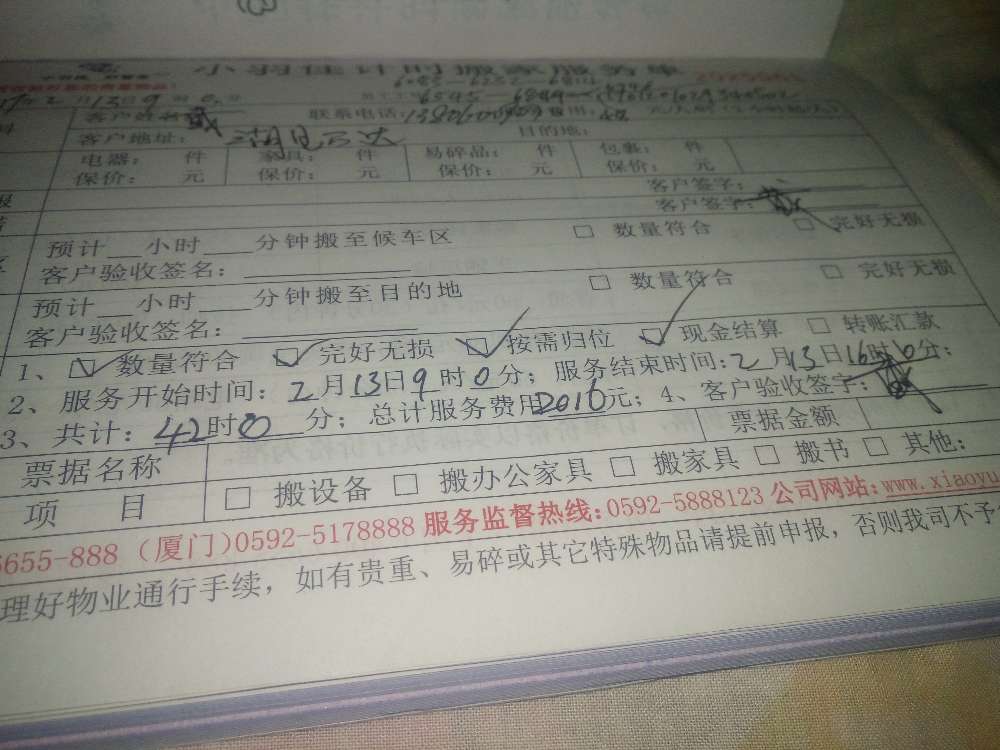 小羽佳计时搬家服务单
2月13日9时0分
客户姓名: 联系电话: 费用: 48
客户地址: 湖里万达 目的地:
电器: 件 家具: 件 易碎品: 件 包裹: 件
保价: 元 保价: 元 保价: 元 保价: 元
客户签字:
客户签字:
预计__小时____分钟搬至候车区 □ 数量符合 □ 完好无损
客户验收签名:
预计__小时____分钟搬至目的地 □ 数量符合 □ 完好无损
客户验收签名:
1、☑ 数量符合 ☑ 完好无损 ☑ 按需归位 ☑ 现金结算 □ 转账汇款
2、服务开始时间: 2月13日9时0分; 服务结束时间: 2月13日16时0分;
3、共计: 42时0分; 总计服务费用2016元; 4、客户验收签字:
票据名称 票据金额
项 目 □ 搬设备 □ 搬办公家具 □ 搬家具 □ 搬书 □ 其他:
6655-888 (厦门)0592-5178888 服务监督热线:0592-5888123 公司网站:www.xiaoyu
理好物业通行手续, 如有贵重、易碎或其它特殊物品请提前申报, 否则我司不予